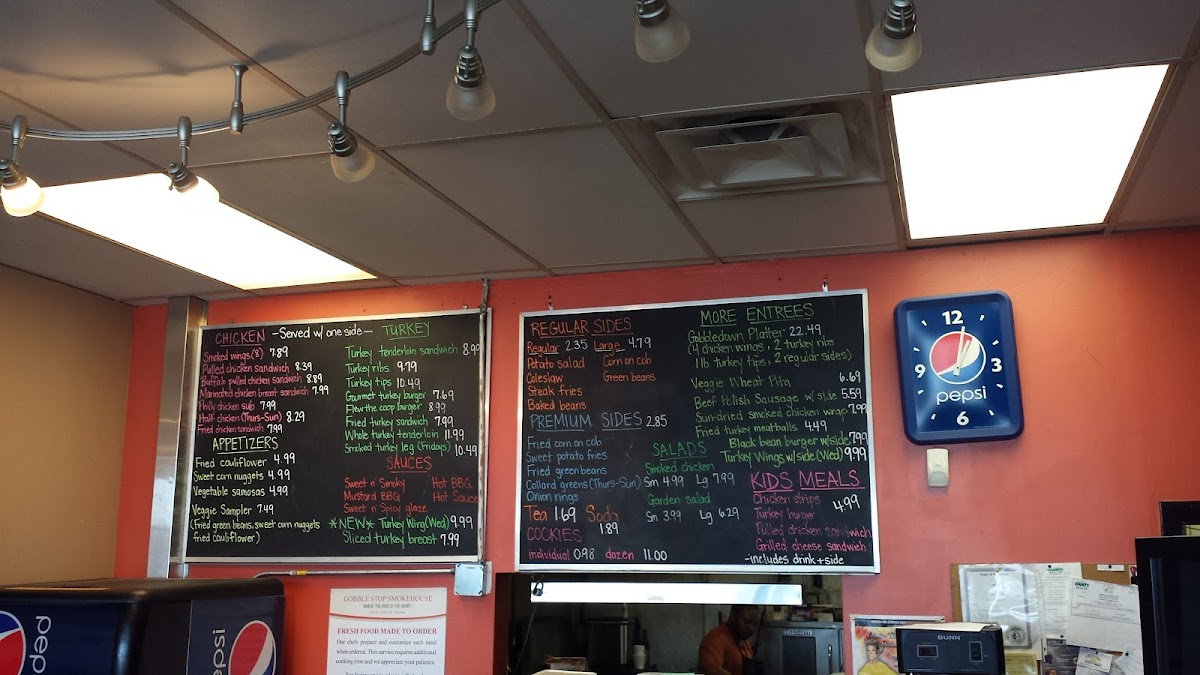 CHICKEN -Served w/ one side- TURKEY
Smoked wings (8) 7.89
Pulled chicken sandwich 8.39
Buffalo pulled chicken sandwich 8.89
Marinated chicken breast sandwich 7.99
Philly chicken sub 7.99
Half chicken (Thurs-Sun) 8.29
Fried chicken sandwich 7.99
APPETIZERS
Fried cauliflower 4.99
Sweet corn nuggets 4.99
Vegetable samosas 4.99
Veggie Sampler 7.49
(Fried green beans, sweet corn nuggets
fried cauliflower)
Turkey tenderloin sandwich 8.99
Turkey ribs 9.79
Turkey tips 10.49
Gourmet turkey burger 7.69
Flew the coop burger 8.99
Fried turkey sandwich 7.99
Whole turkey tenderloin 11.99
Smoked turkey leg (Fridays) 10.49
SAUCES
Sweet n Smoky Hot BBQ
Mustard BBQ Hot Sauce
Sweet n Spicy glaze
*NEW* Turkey Wing (Wed) 9.99
Sliced turkey breast 7.99
REGULAR SIDES
Regular 2.35 Large 4.79
Potato salad Corn on cob
Coleslaw Green beans
Steak fries
Baked beans
PREMIUM SIDES 2.85
Fried corn on cob
Sweet potato fries
Fried green beans
Collard greens (Thurs-Sun)
Onion rings
Tea 1.69 Soda 1.89
COOKIES
individual 0.98 dozen 11.00
SALADS
Smoked chicken
Sm 4.99 Lg 7.99
Garden salad
Sm 3.99 Lg 6.29
MORE ENTREES
Gobbledown Platter 22.49
(4 chicken wings, 2 turkey ribs
1 lb. turkey tips, 2 regular sides)
Veggie Wheat Pita 6.69
Beef Polish Sausage w/ side 5.59
Sun-dried smoked chicken wrap 7.99
Fried turkey meatballs 4.49
Black bean burger w/side 7.99
Turkey Wings w/side (Wed) 9.99
KIDS MEALS
Chicken strips 4.99
Turkey burger
Pulled chicken sandwich
Grilled cheese sandwich
-includes drink + side
12
9 3
pepsi
6
pepsi
pepsi
GOBBLE STOP SMOKEHOUSE
FRESH FOOD MADE TO ORDER
Our chefs prepare and customize each meal
when ordered. This service requires additional
cooking time and we appreciate your patience.
BUNN